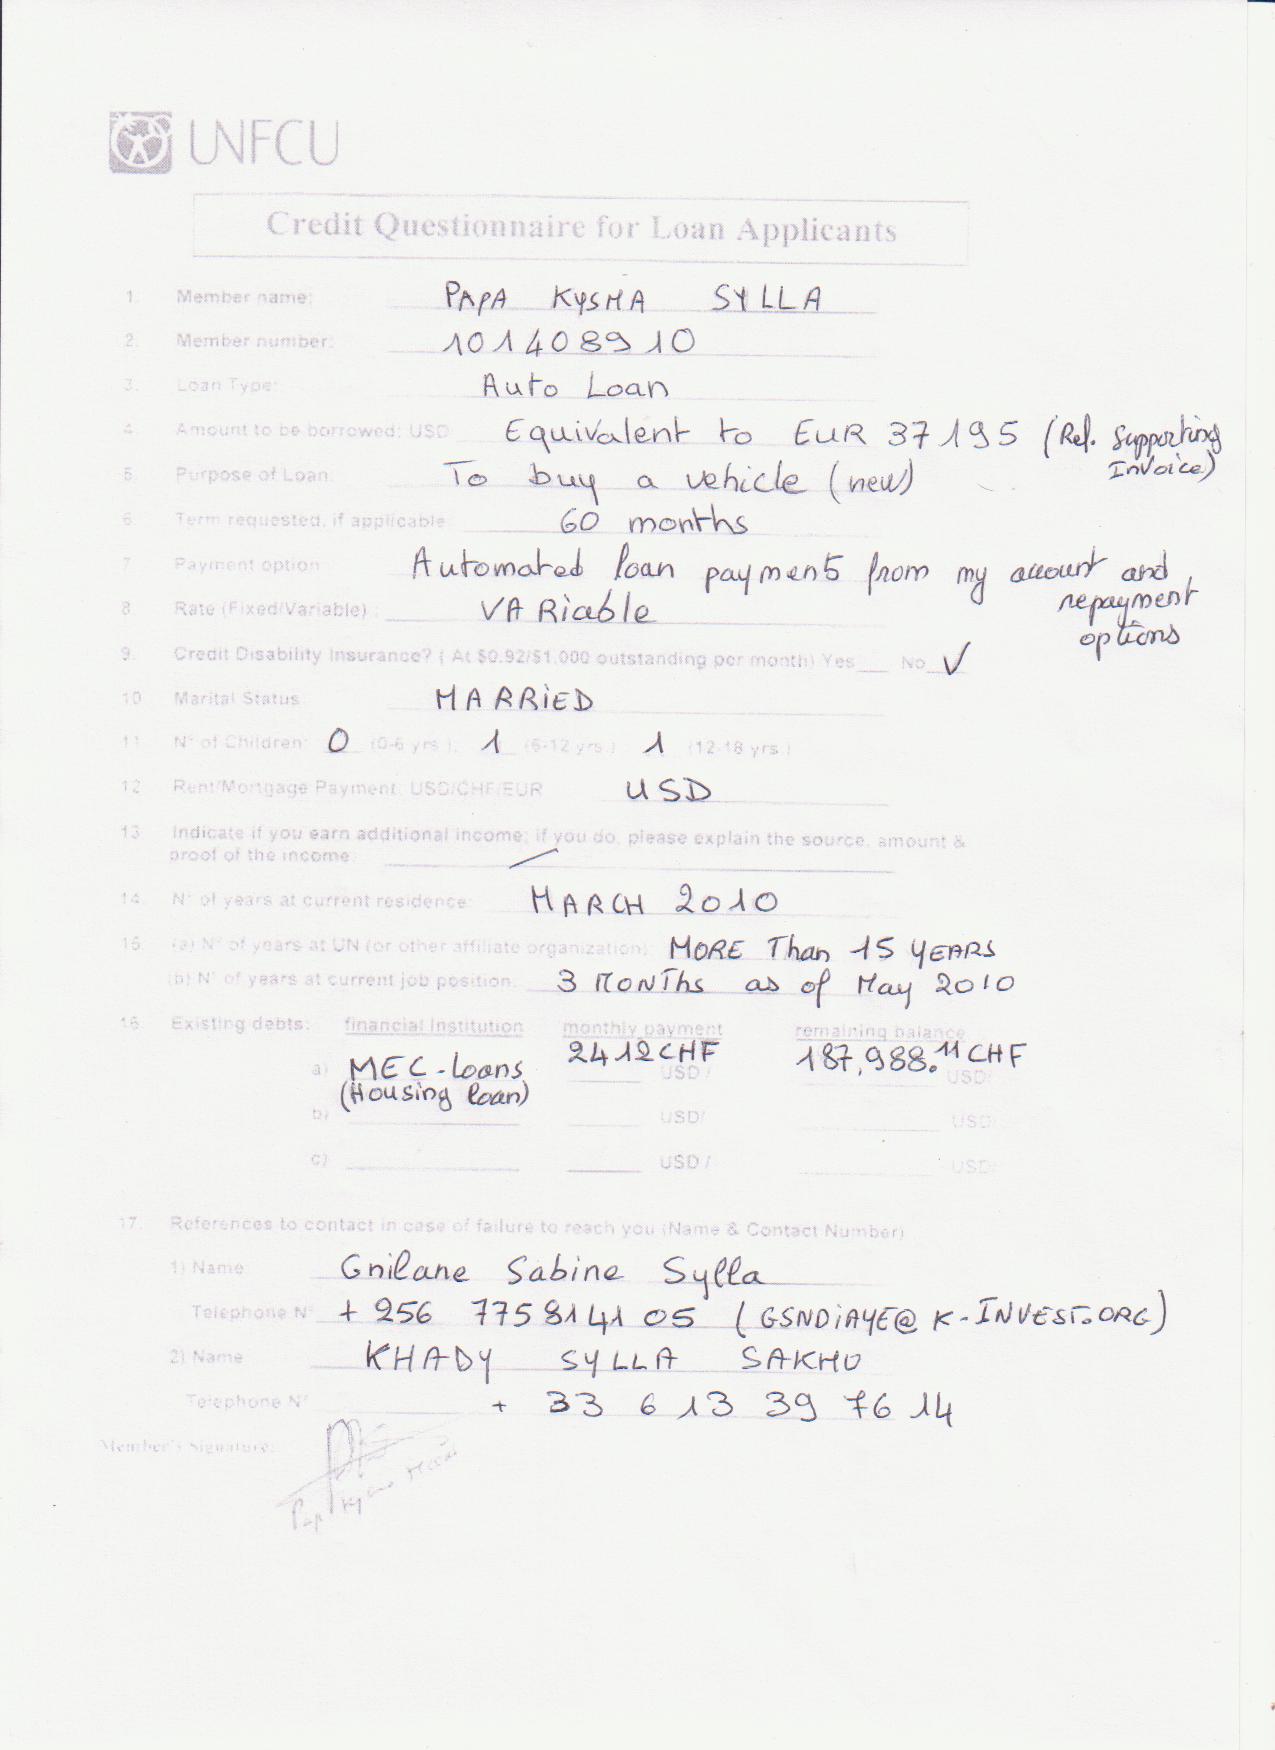 UNFCU
Credit Questionnaire for Loan Applicants
1. Member name: PAPA KYSMA SYLLA
2. Member number: 101408910
3. Loan Type: Auto Loan
4. Amount to be borrowed: USD Equivalent to EUR 37195 (Ref. Supporting
Invoice)
5. Purpose of Loan: To buy a vehicle (new)
6. Term requested, if applicable: 60 months
7. Payment option: Automated loan payments from my account and
repayment
options
8. Rate (Fixed/Variable): VARiable
9. Credit Disability Insurance? ( At $0.92/$1,000 outstanding per month) Yes___ No ✓
10. Marital Status: MARRiED
11. N° of Children: 0 (0-6 yrs.); 1 (6-12 yrs.) 1 (12-18 yrs.)
12. Rent/Mortgage Payment: USD/CHF/EUR USD
13. Indicate if you earn additional income; if you do, please explain the source, amount &
proof of the income:
14. N° of years at current residence: MARCH 2010
15. (a) N° of years at UN (or other affiliate organization): MORE Than 15 YEARS
(b) N° of years at current job position: 3 MONThs as of May 2010
16. Existing debts: financial Institution monthly payment remaining balance
a) MEC-Loans 2412 CHF USD/ 187,988.11 CHF USD/
(Housing loan)
b) USD/ USD/
c) USD/ USD/
17. References to contact in case of failure to reach you (Name & Contact Number)
1) Name Gnilane Sabine Sylla
Telephone N° + 256 775 814105 (GSNDiAYE@K-INVEST.ORG)
2) Name KHADY SYLLA SAKHO
Telephone N° + 33 6 13 39 76 14
Member's Signature: